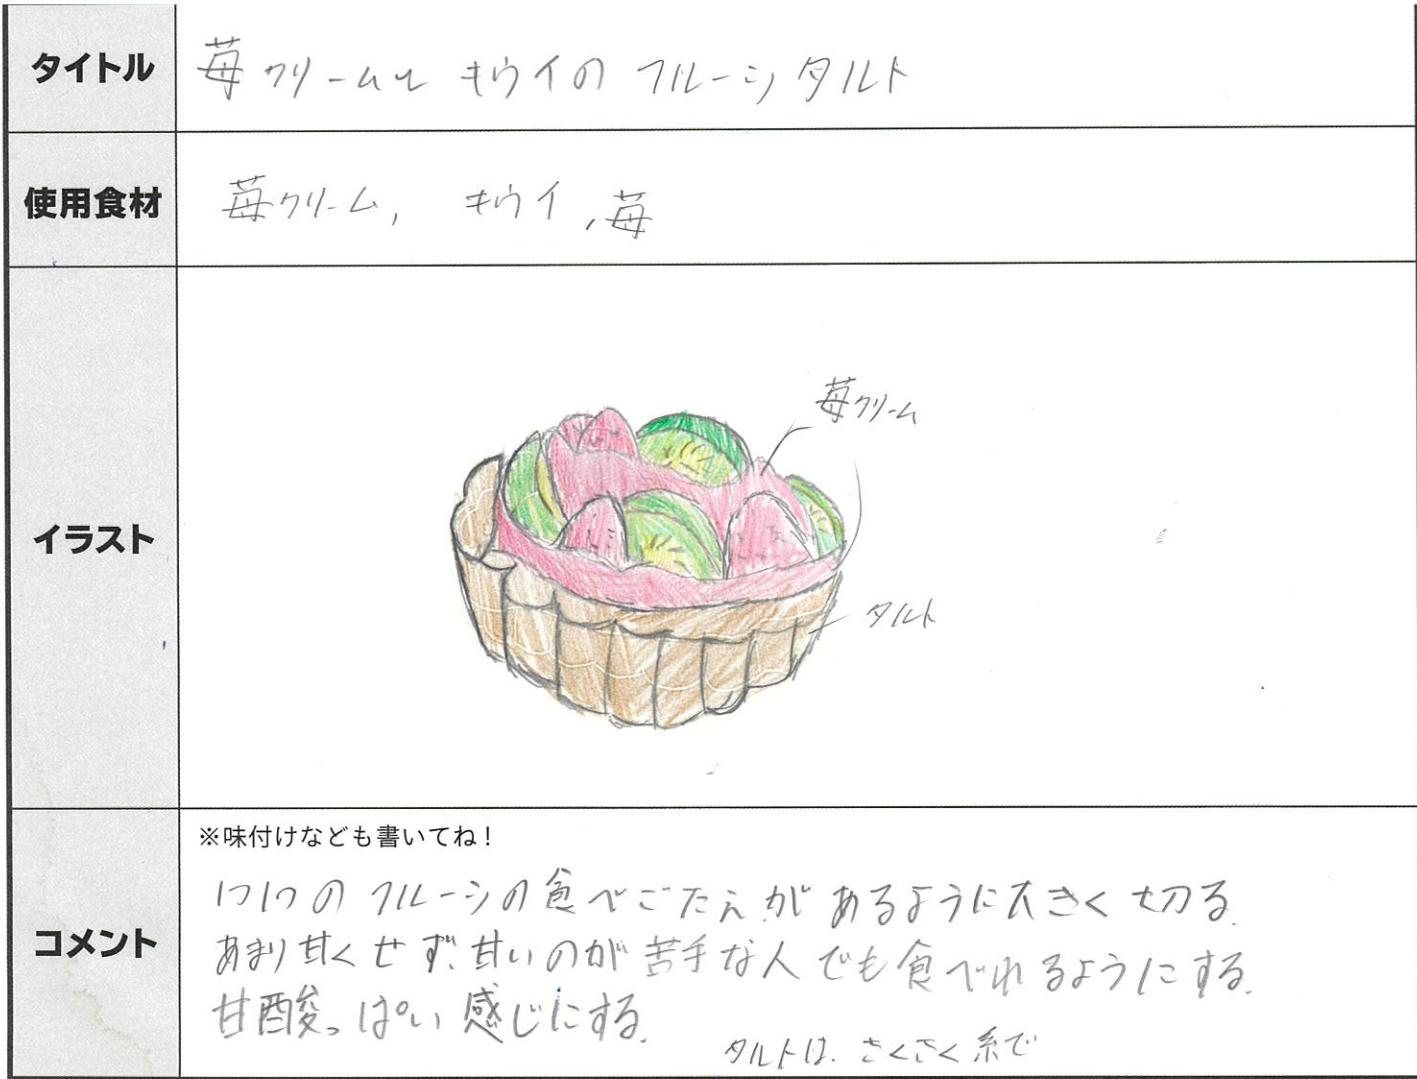 タイトル
苺クリームと キウイの フルーツタルト
使用食材
苺クリーム, キウイ, 苺
イラスト
苺クリーム
タルト
コメント
※味付けなども書いてね!
1つ1つの フルーツの食べごたえがあるように大きく切る.
あまり甘くせず、甘いのが苦手な人でも食べれるようにする.
甘酸っぱい感じにする.
タルトは、さくさく系で